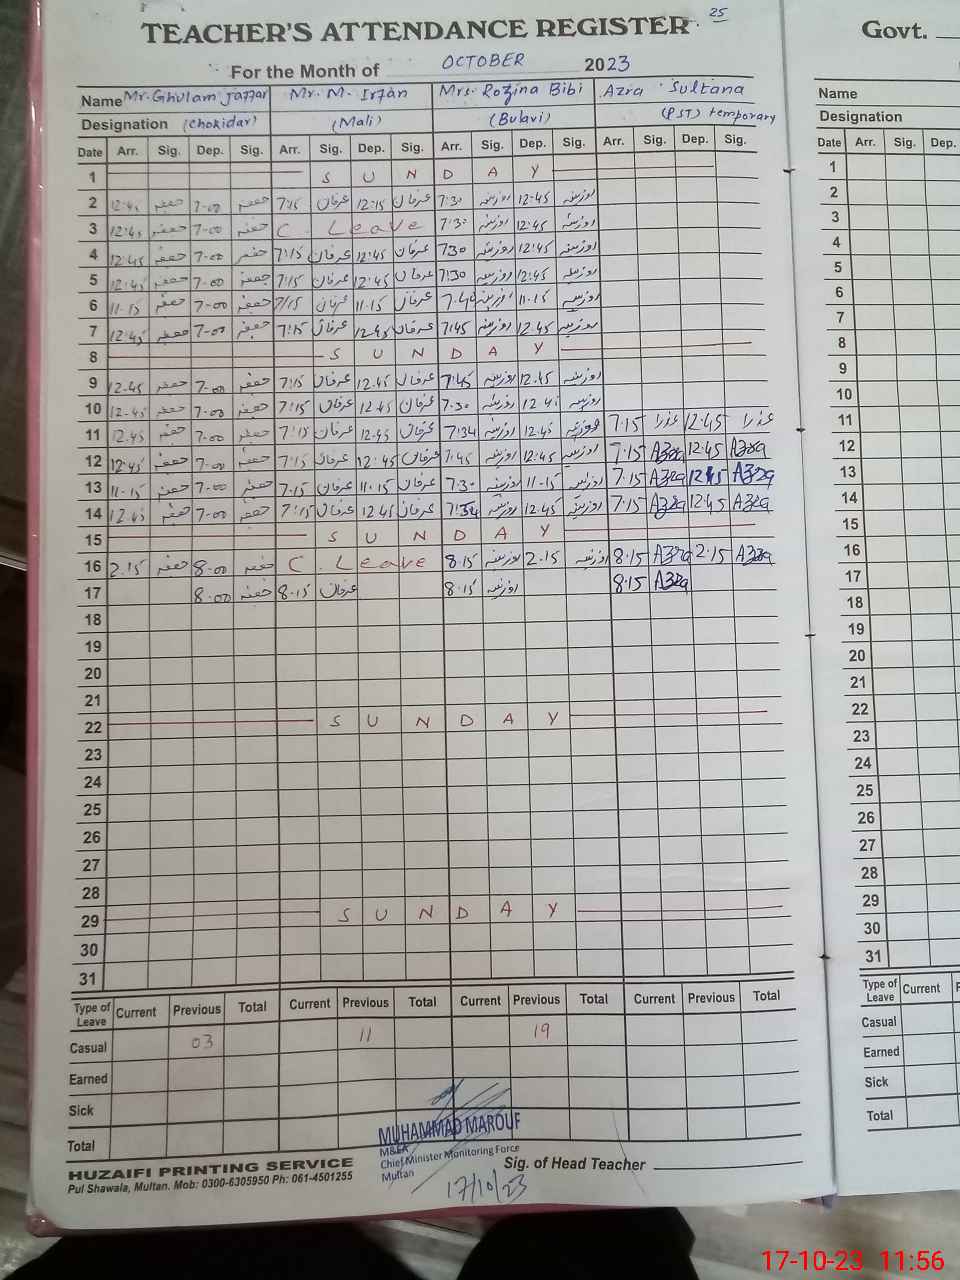 25
TEACHER'S ATTENDANCE REGISTER Govt.
For the Month of OCTOBER 2023
Name Mr. Ghulam Jaffar Mr. M. Irfan Mrs. Rozina Bibi Azra Sultana Name
Designation (Chokidar) (Mali) (Bulavi) (PST) temporary Designation
Date Arr. Sig. Dep. Sig. Arr. Sig. Dep. Sig. Arr. Sig. Dep. Sig. Arr. Sig. Dep. Sig. Date Arr. Sig. Dep.
1 S U N D A Y 1
2 12:45 7-00 7:15 عرفان 12:15 عرفان 7:30 روزینہ 12:45 روزینہ 2
3 12:45 7-00 C. Leave 7:30 روزینہ 12:45 روزینہ 3
4 12:45 7-00 7:15 عرفان 12:45 عرفان 7:30 روزینہ 12:45 روزینہ 4
5 12:45 7-00 7:15 عرفان 12:45 عرفان 7:30 روزینہ 12:45 روزینہ 5
6 11-15 7-00 7:15 عرفان 11-15 عرفان روزینہ 11-15 روزینہ 6
7 12:45 7-00 7:15 عرفان 12:45 عرفان 7:45 روزینہ 12:45 روزینہ 7
8 S U N D A Y 8
9 12.45 7-00 7:15 عرفان 12.45 عرفان 7:45 روزینہ 12.45 روزینہ 9
10 12-45 7-00 7:15 عرفان 12.45 عرفان 7:30 روزینہ روزینہ 10
11 12.45 7-00 7:15 عرفان 12.45 عرفان 7:34 روزینہ 12.45 7.15 عذرا 12.45 عذرا 11
12 12:45 7-00 7:15 عرفان 12:45 عرفان 7:45 روزینہ 12:45 روزینہ 7.15 Azra 12.45 Azra 12
13 11-15 7-00 7.15 عرفان 11.15 عرفان 7.30 روزینہ 11-15 روزینہ 7.15 Azra 12.45 Azra 13
14 12.45 7-00 7:15 عرفان 12.45 عرفان 7:34 روزینہ 12.45 روزینہ 7.15 Azra 12.45 Azra 14
15 S U N D A Y 15
16 2.15 8.00 C. Leave 8.15 روزینہ 2.15 روزینہ 8.15 Azra 2.15 Azra 16
17 8.00 8.15 عرفان 8.15 روزینہ 8.15 Azra 17
18 18
19 19
20 20
21 21
22 S U N D A Y 22
23 23
24 24
25 25
26 26
27 27
28 28
29 S U N D A Y 29
30 30
31 31
Type of Leave Current Previous Total Current Previous Total Current Previous Total Current Previous Total Type of Leave Current
Casual 03 11 19 Casual
Earned Earned
Sick Sick
Total Total
MUHAMMAD MAROUF
M&EA
Chief Minister Monitoring Force
Multan
17/10/23
HUZAIFI PRINTING SERVICE Sig. of Head Teacher
Pul Shawala, Multan. Mob: 0300-6305950 Ph: 061-4501255
17-10-23 11:56